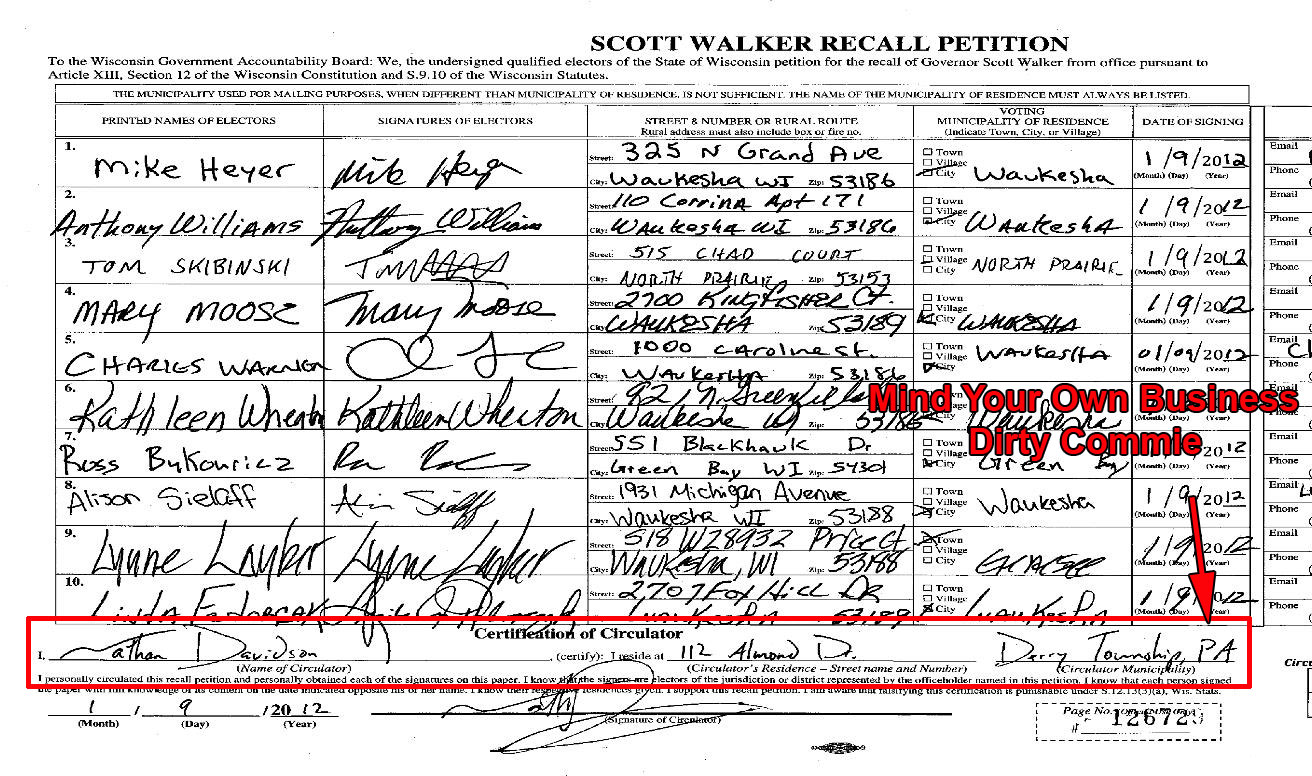 SCOTT WALKER RECALL PETITION
To the Wisconsin Government Accountability Board: We, the undersigned qualified electors of the State of Wisconsin petition for the recall of Governor Scott Walker from office pursuant to
Article XIII, Section 12 of the Wisconsin Constitution and S.9.10 of the Wisconsin Statutes.
THE MUNICIPALITY USED FOR MAILING PURPOSES, WHEN DIFFERENT THAN MUNICIPALITY OF RESIDENCE, IS NOT SUFFICIENT. THE NAME OF THE MUNICIPALITY OF RESIDENCE MUST ALWAYS BE LISTED.
PRINTED NAMES OF ELECTORS SIGNATURES OF ELECTORS STREET & NUMBER OR RURAL ROUTE Rural address must also include box or fire no. VOTING MUNICIPALITY OF RESIDENCE (Indicate Town, City, or Village) DATE OF SIGNING
1. Mike Heyer Mike Heyer Street: 325 N Grand Ave Town Village City Waukesha 1/9/2012 Email
City: Waukesha WI Zip: 53186 (Month) (Day) (Year) Phone
2. Anthony Williams Anthony Williams Street: 110 Corrina Apt 171 Town Village City Waukesha 1/9/2012 Email
City: Waukesha WI Zip: 53186 (Month) (Day) (Year) Phone
3. TOM SKIBINSKI Street: 515 CHAD COURT Town Village City NORTH PRAIRIE 1/9/2012 Email
City: NORTH PRAIRIE Zip: 53153 (Month) (Day) (Year) Phone
4. MARY MOOSE Mary Moose Street: 2700 KINGFISHER Ct. Town Village City WAUKESHA 1/9/2012 Email
City: WAUKESHA Zip: 53189 (Month) (Day) (Year) Phone
5. CHARLES Street: 1000 Caroline St. Town Village City WAUKESHA 01/09/2012 Email
City: WAUKESHA Zip: 53186 (Month) (Day) (Year) Phone
6. Kathleen Wheaton Kathleen Wheaton Street: Town Email
City: Waukesha WI Zip: 53186 City Waukesha (Month) (Day) (Year) Phone
Mind Your Own Business
Dirty Commie
7. Ross Bykowicz Street: 551 Blackhawk Dr Town Village City Green Bay 2012 Email
City: Green Bay WI Zip: 54301 (Month) (Day) (Year) Phone
8. Alison Sielaff Street: 1931 Michigan Avenue Town Village City Waukesha 1/9/2012 Email
City: Waukesha WI Zip: 53188 (Month) (Day) (Year) Phone
9. Lynne Layber Lynne Layber Street: S18 W28932 Price Ct Town Village City 1/9/2012 Email
City: Waukesha, WI Zip: 53188 (Month) (Day) (Year) Phone
10. Linda Street: 2707 Fox Hill DR Town Village City Waukesha 1/9/2012 Email
City: Waukesha Zip: (Month) (Day) (Year) Phone
Certification of Circulator
I, Nathan Davidson, (certify): I reside at 112 Almond Dr. Derry Township, PA
(Name of Circulator) (Circulator's Residence – Street name and Number) (Circulator Municipality)
I personally circulated this recall petition and personally obtained each of the signatures on this paper. I know that the signers are electors of the jurisdiction or district represented by the officeholder named in this petition. I know that each person signed
the paper with full knowledge of its content on the date indicated opposite his or her name. I know their respective residences given. I support this recall petition. I am aware that falsifying this certification is punishable under S.12.13(3)(a), Wis. Stats.
1 / 9 /2012
(Month) (Day) (Year) (Signature of Circulator)
Page No. 126729